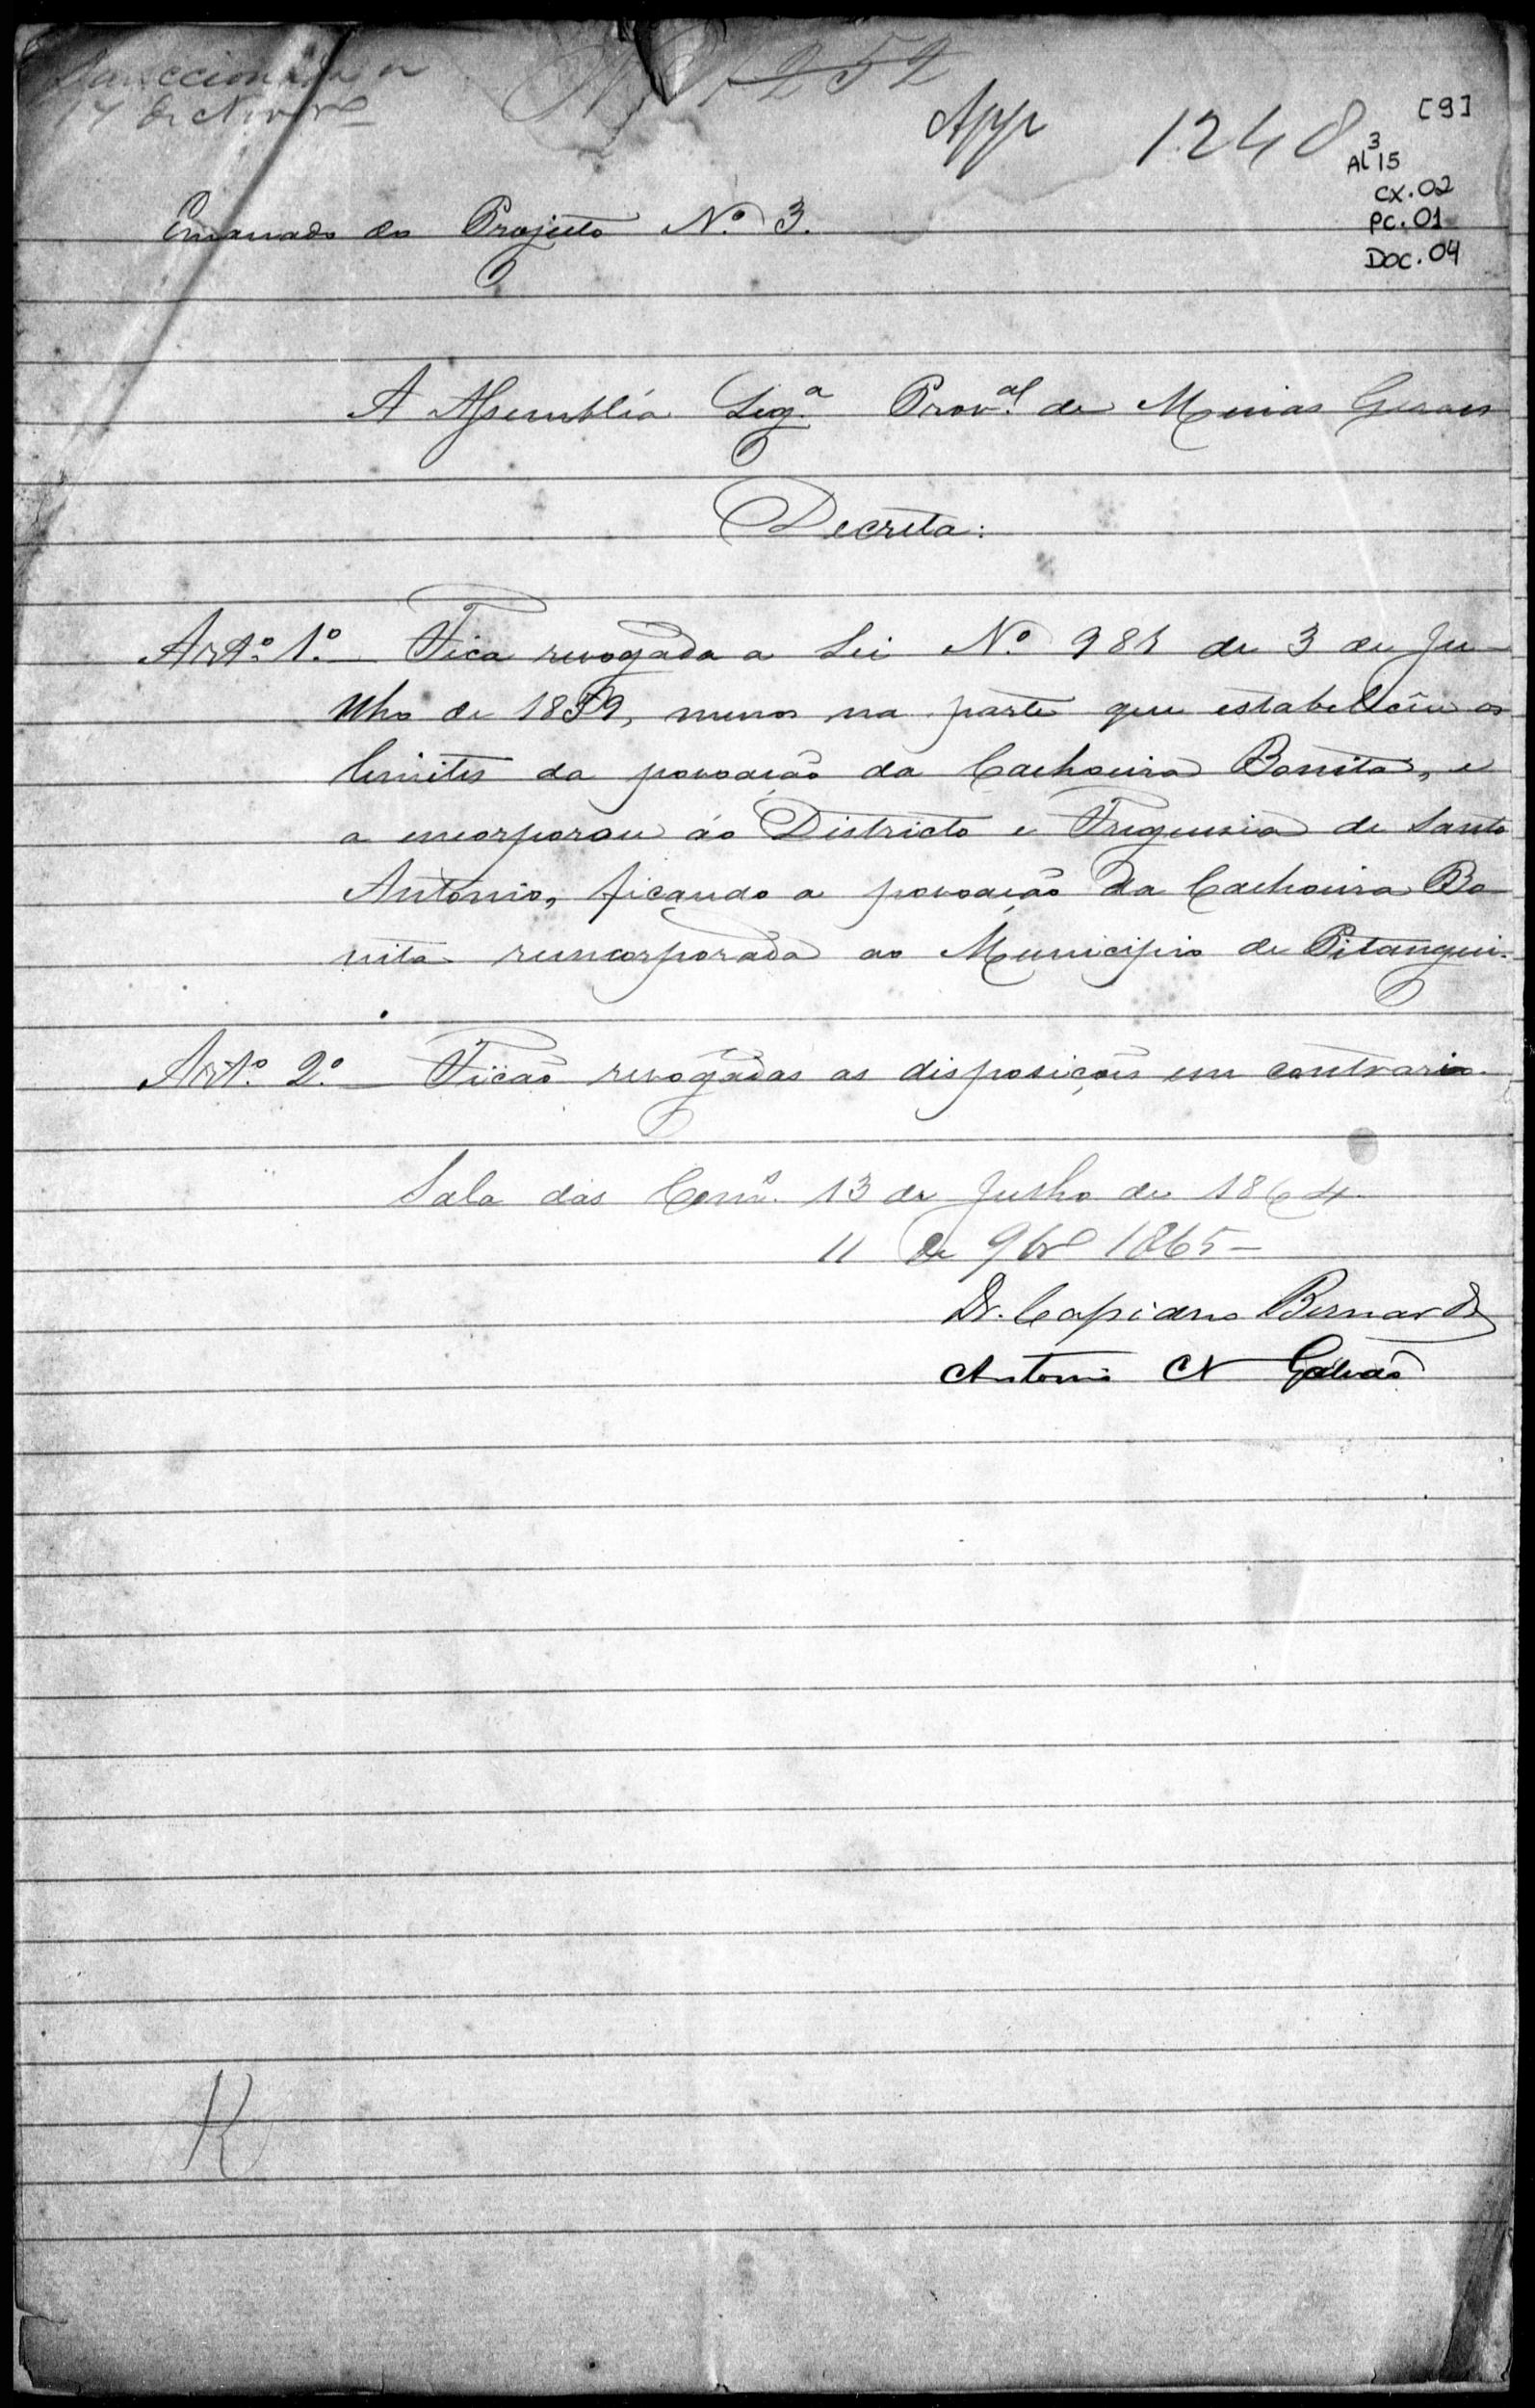 Sanccionada em Nº 1252
14 de Novbrº
App 1248 [9]
3
AL 15
CX.02
PC.01
DOC.04
Emanado do Projecto N.º 3.
A Assembléa Leg.ª Prov.al de Minas Geraes
Decreta:
Art.º 1.º Fica revogada a Lei Nº 981 de 3 de Ju-
nho de 1859, menos na parte que estabelecêu os
limites da povoação da Cachoeira Bonita, e
a encorporou áo Districto e Freguesia de Santo
Antonio, ficando a povoação da Cachoeira Bo-
nita reincorporada ao Municipio de Pitangui.
Art.º 2.º Ficão revogadas as disposições em contrario.
Sala das Comes. 13 de Julho de 1864
11 de 9br 1865-
Dr. Cassiano Bernardo
Antonio N Galvão